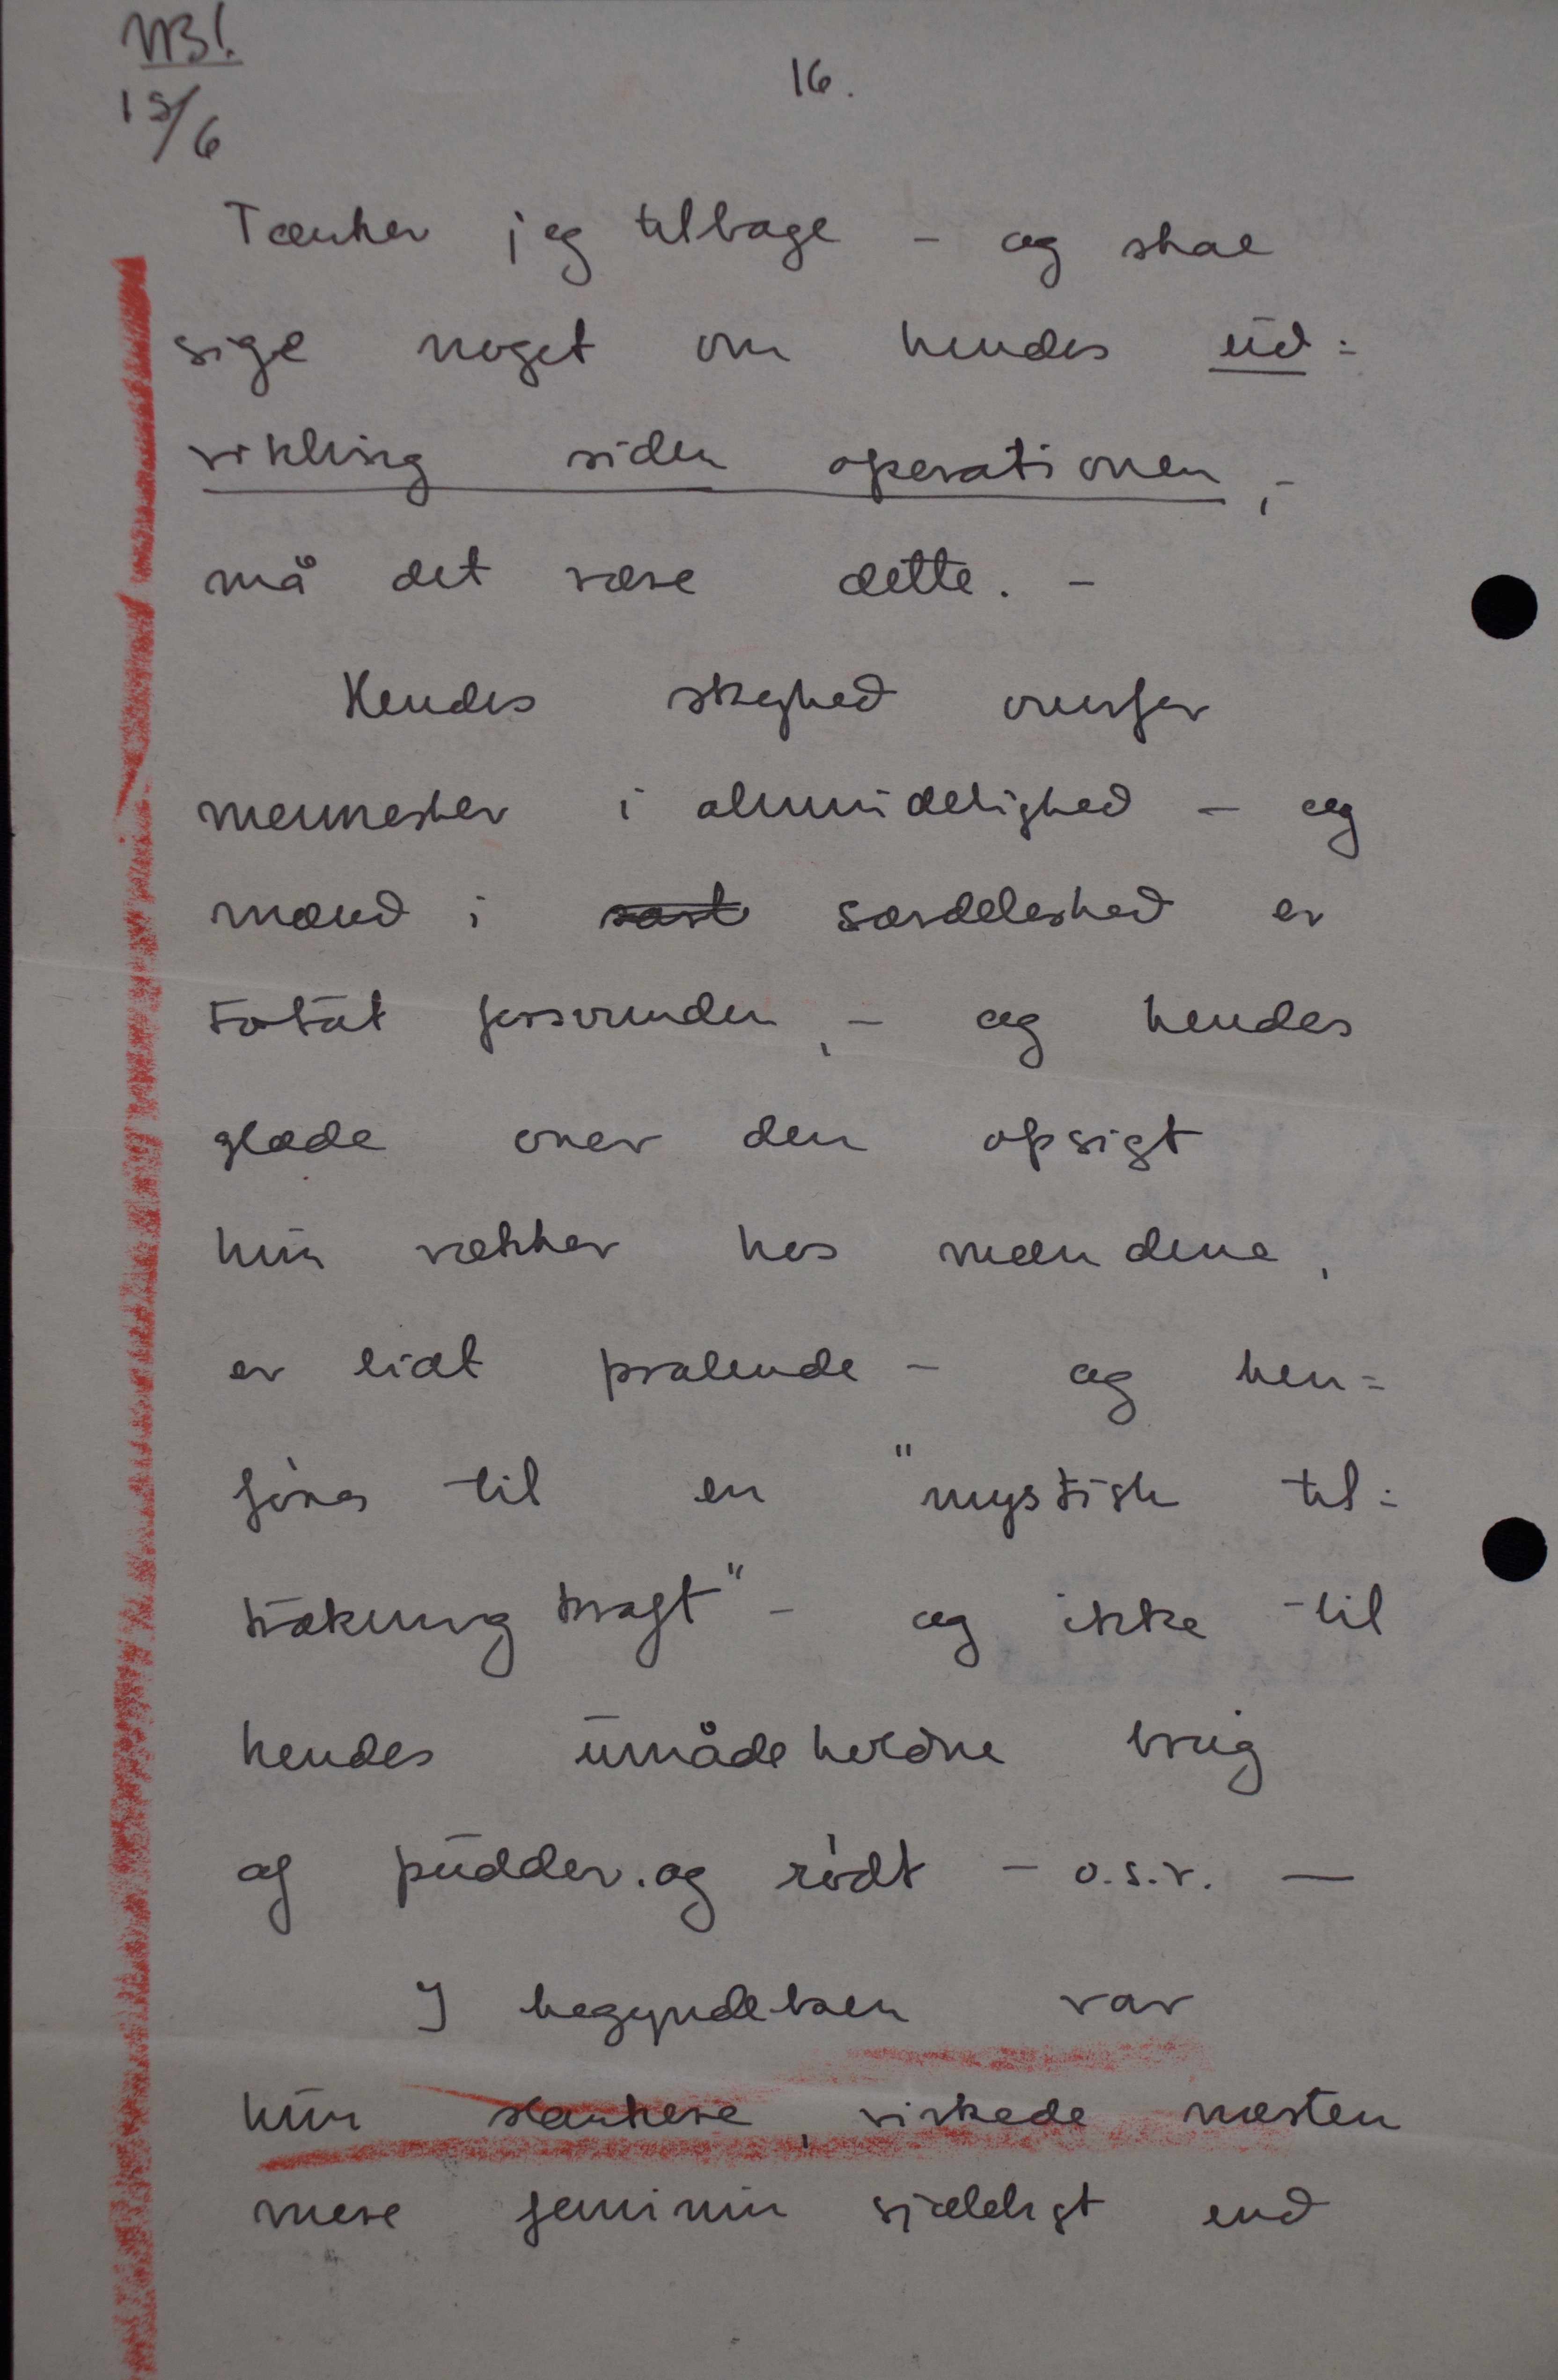 NB!.
15/6
16.
Tænker jeg tilbage – og skal
sige noget om hendes ud=
vikling siden operationen, –
må det være dette. –
Hendes skyhed overfor
mennesker i almindelighed – og
mænd i særdeleshed er
totalt forsvunden, – og hendes
glæde over den opsigt
hun vækker hos mændene,
er lidt pralende – og hen=
føres til en "mystisk til=
trækning kraft" – og ikke til
hendes umådeholdne brug
af pudder og rødt – o.s.v. —
I begyndelsen var
hun stærkere, virkede næsten
mere feminin sjæleligt end